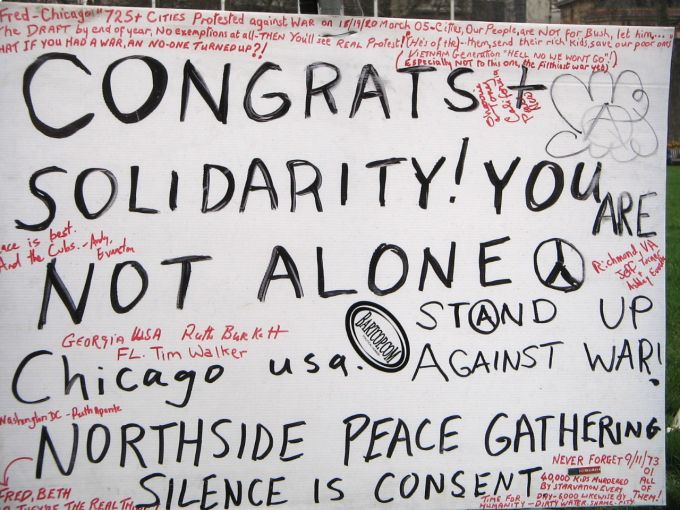 Fred-Chicago "725+ Cities Protested against WAR on 18/19/20 March 05-Cities, Our People, are NOT for Bush, let him....
The DRAFT by end of year, No exemptions at all-THEN You'll see REAL Protest! (He's of the)-them, send their rich kids, save our poor ones
HAT IF YOU HAD A WAR, AN NO-ONE TURNED UP?!
(VIETNAM Generation "HELL NO WE WONT GO"!)
(Especially NOT to this one, the filthiest war yet)
CONGRATS +
SOLIDARITY! YOU
ARE
ace is best.
And the Cubs. - Andy,
Evanston
NOT ALONE
Richmond, VA
Jeff Turner
Ashley
BARTCOP.COM
STAND UP
AGAINST WAR!
GEORGIA USA Ruth Burkett
FL. Tim Walker
Chicago usa.
Washington DC - Ruth Aponte
NORTHSIDE PEACE GATHERING
SILENCE IS CONSENT
NEVER FORGET 9/11/73
01
40,000 KIDS MURDERED
BY STARVATION EVERY
DAY-6000 LIKEWISE BY
ALL
OF
THEM!
TIME FOR
HUMANITY - DIRTY WATER. SHAME-PITY
FRED, BETH
THEY'RE THE REAL THING